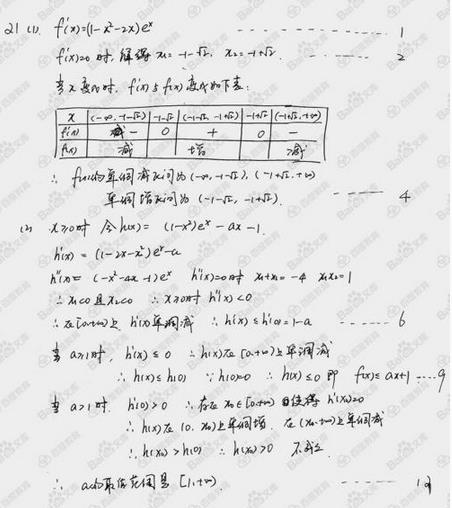 21 (1). f'(x)=(1-x²-2x)eˣ ------ 1
f'(x)=0 时, 解得 x₁=-1-√2, x₂=-1+√2. ------ 2
当 x 变化时, f'(x) 与 f(x) 变化如下表:
x (-∞,-1-√2) -1-√2 (-1-√2,-1+√2) -1+√2 (-1+√2,+∞)
f'(x) - 0 + 0 -
f(x) 减 增 减
∴ f(x)的单调减区间为 (-∞,-1-√2), (-1+√2,+∞)
单调增区间为 (-1-√2,-1+√2). ------ 4
(2) x≥0时 令 h(x)= (1-x²)eˣ-ax-1.
h'(x) = (1-2x-x²)eˣ-a
h''(x)= (-x²-4x-1)eˣ h''(x)=0时 x₁+x₂=-4 x₁x₂=1
∴ x₁<0 且 x₂<0 ∴ x≥0时 h''(x)<0
∴ 在[0,+∞)上 h'(x)单调减 ∴ h'(x)≤h'(0)=1-a ------ 6
当 a≥1时, h'(x)≤0 ∴ h(x)在[0,+∞)上单调减
∴ h(x)≤h(0) ∵ h(0)=0 ∴ h(x)≤0 即 f(x)≤ax+1 ----- 9
当 a>1时. h'(0)>0 ∴ 存在 x₀∈[0,+∞) 使得 h'(x₀)=0
∴ h(x)在 (0, x₀)上单调增. 在 (x₀,+∞)上单调减
∴ h(x₀)>h(0) ∴ h(x₀)>0 不成立.
∴ a的取值范围是 [1,+∞). ------ 12